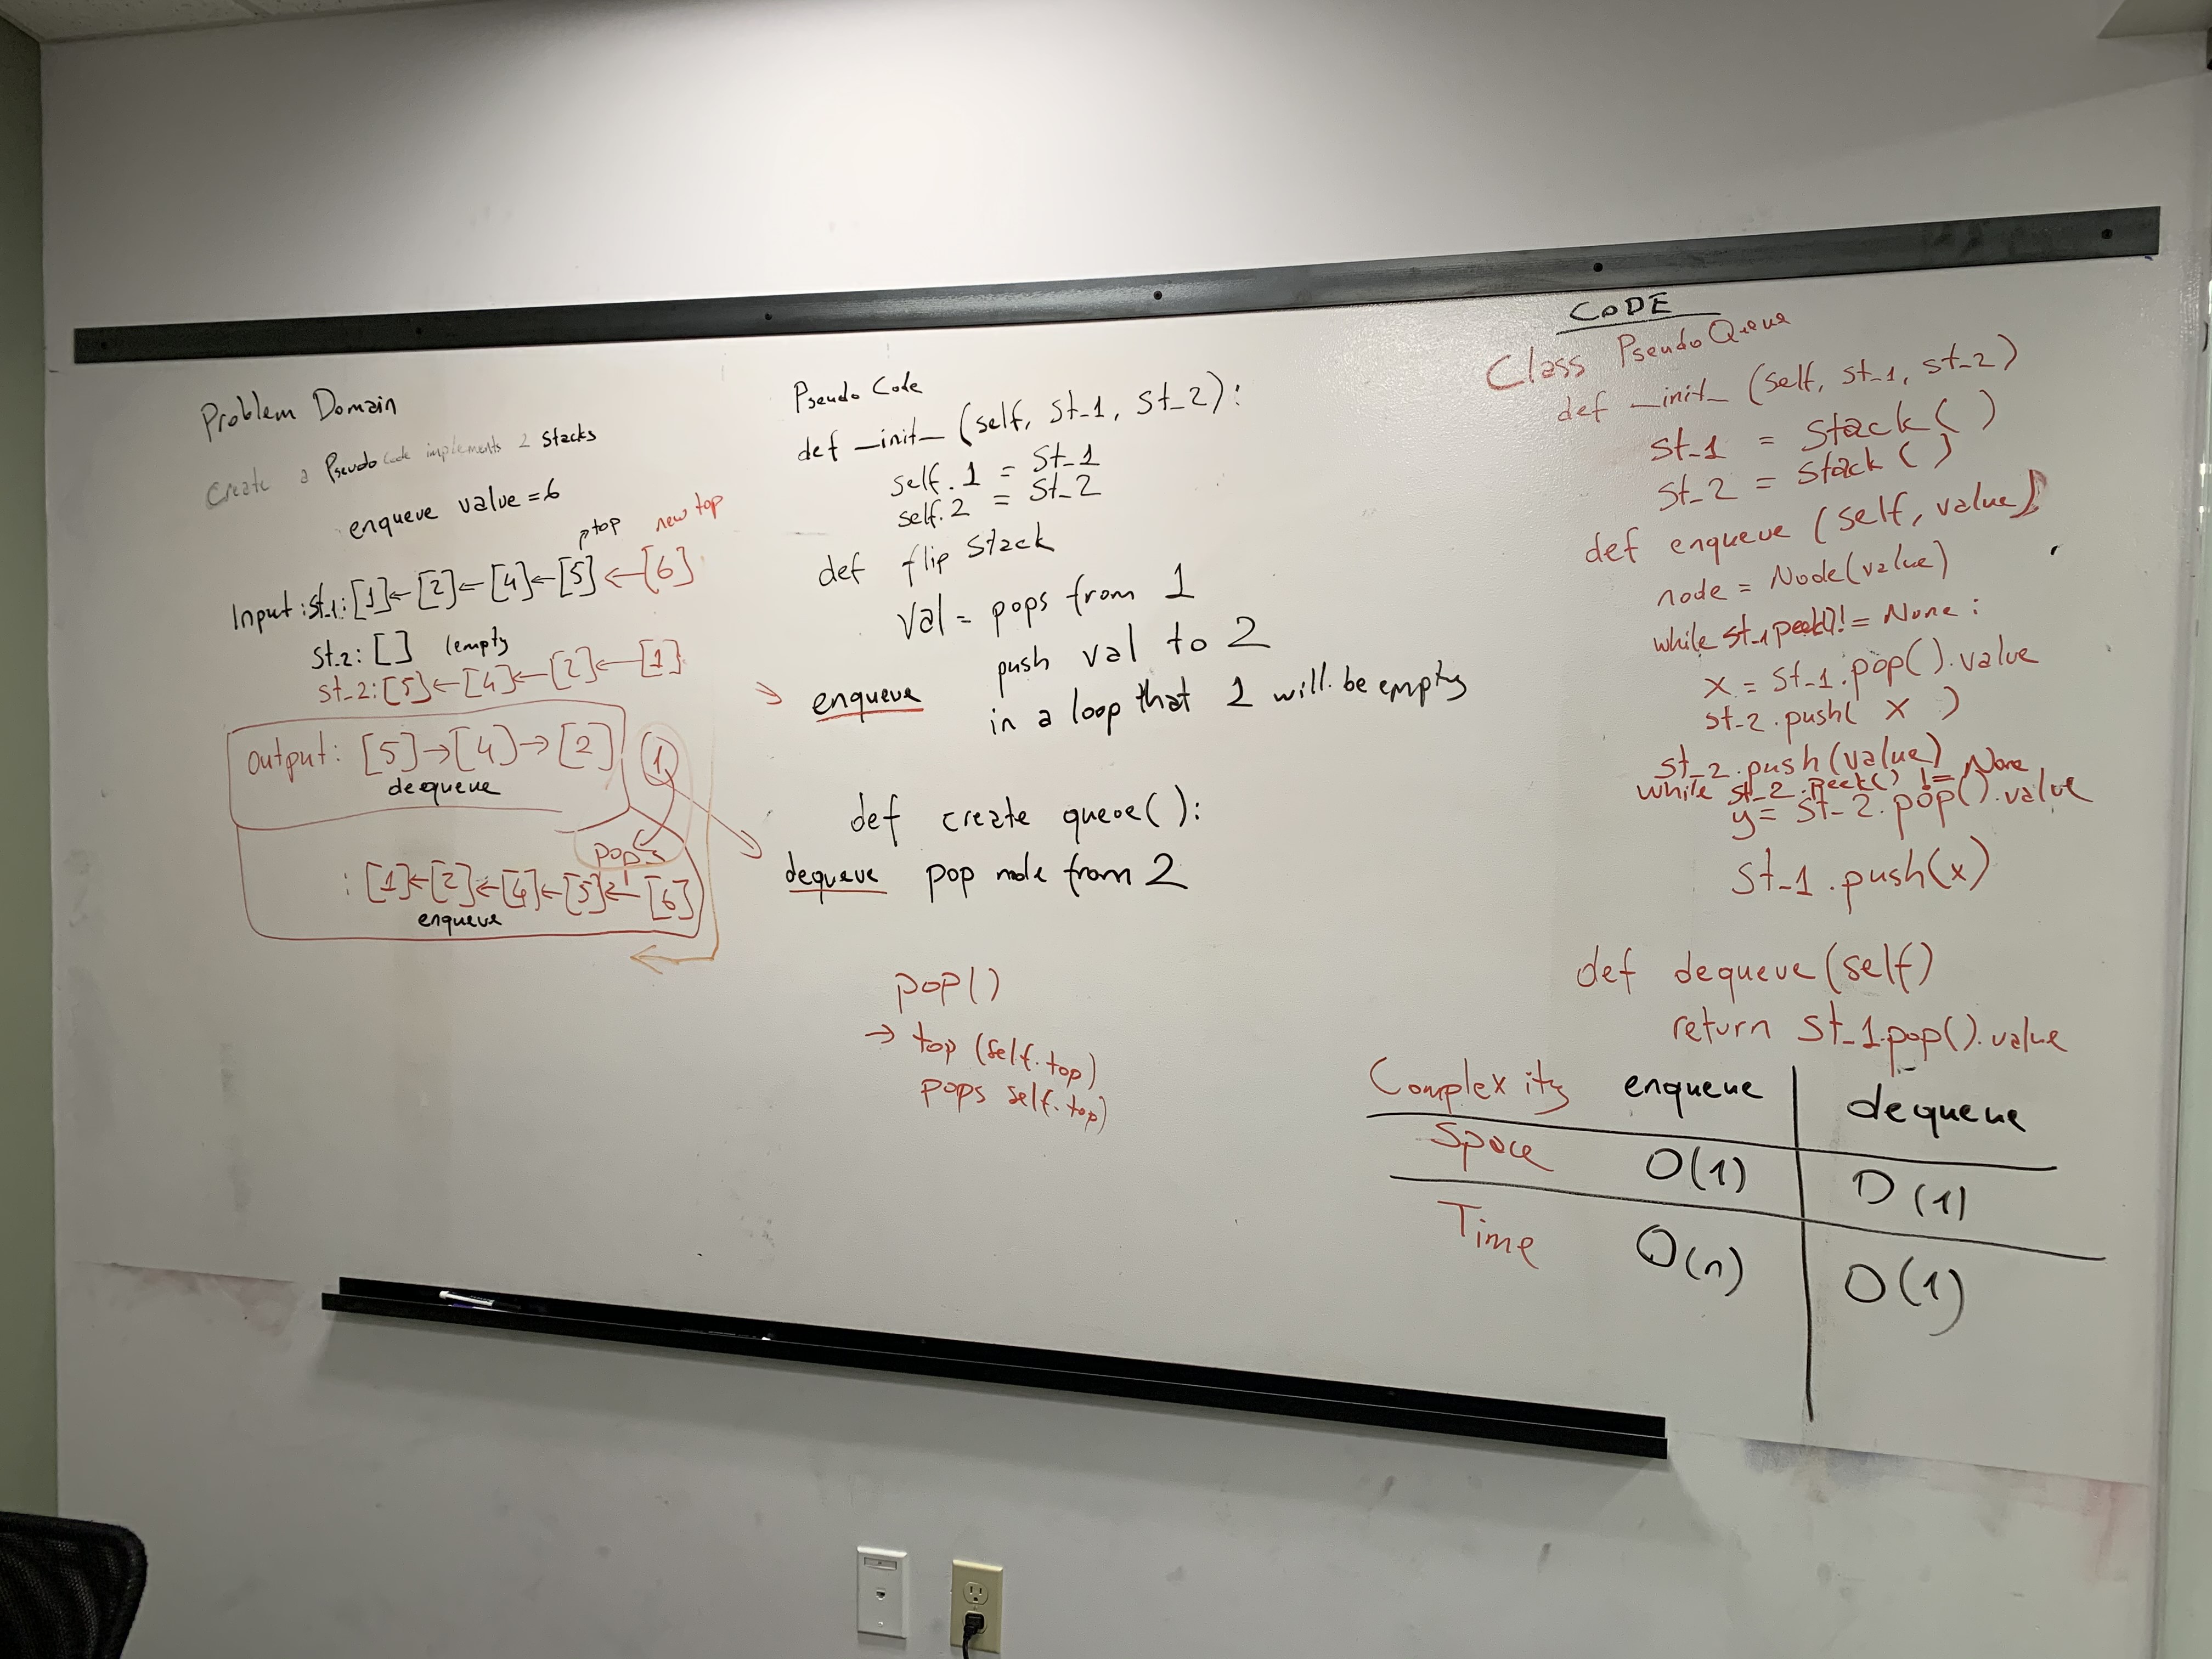 Problem Domain
Create a Pseudo code implements 2 stacks
enqueue value = 6
top new top
Input: st_1: [1]←[2]←[4]←[5]←[6]
st_2: [ ] (empty
st_2: [5]←[4]←[2]←[1]
Output: [5]→[4]→[2] 1
dequeue
pops
: [1]←[2]←[4]←[5]←[6]
enqueue
Pseudo Code
def _init_ (self, St_1, St_2):
self.1 = St_1
self.2 = St_2
def flip Stack
Val = pops from 1
push val to 2
→ enqueue in a loop that 1 will be empty
def create queue():
dequeue pop node from 2
pop()
→ top (self.top)
pops self.top)
CODE
Class PseudoQueue
def _init_ (self, st_1, st_2)
st_1 = Stack()
st_2 = Stack()
def enqueue (self, value)
node = Node(value)
while st_1 peek()!= None:
x = st_1.pop().value
st_2.push( x )
st_2.push(value)
while st_2.peek() != None
y = st_2.pop().value
st_1.push(x)
def dequeue(self)
return st_1.pop().value
Complexity enqueue dequeue
Space O(1) O(1)
Time O(n) O(1)